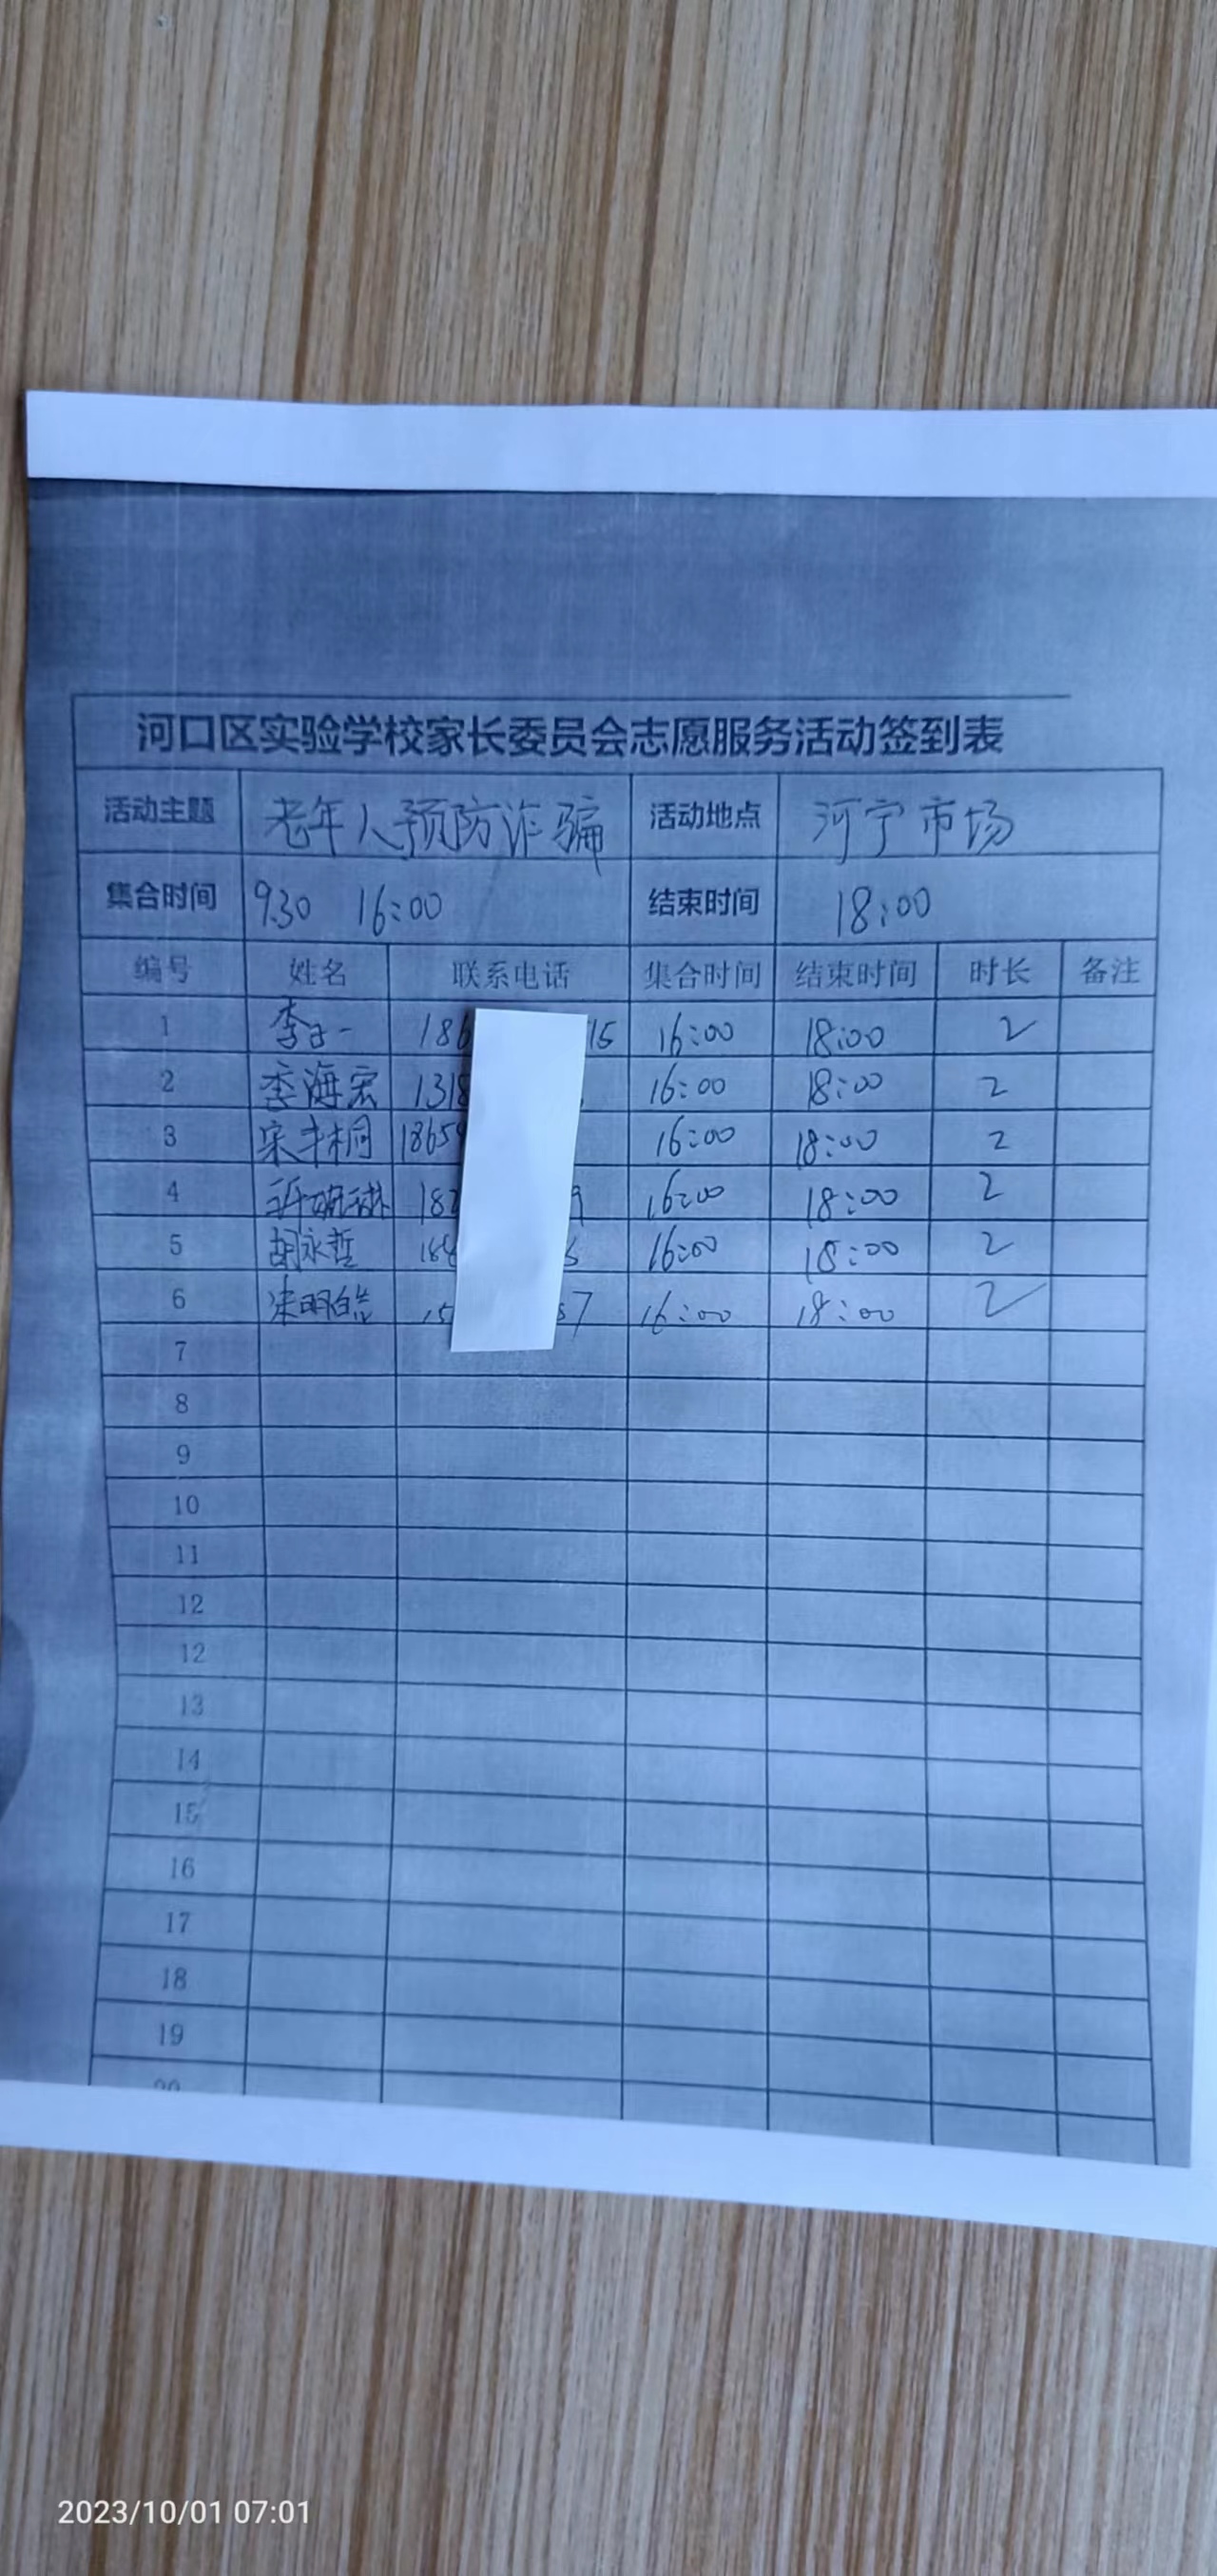 河口区实验学校家长委员会志愿服务活动签到表
活动主题 老年人预防诈骗 活动地点 河宁市场
集合时间 9.30 16:00 结束时间 18:00
编号 姓名 联系电话 集合时间 结束时间 时长 备注
1 李 一 186 15 16:00 18:00 2
2 李海宏 1318 16:00 18:00 2
3 宋 桐 1865 16:00 18:00 2
4 182 9 16:00 18:00 2
5 胡永哲 16:00 18:00 2
6 15 7 16:00 18:00 2
7
8
9
10
11
12
12
13
14
15
16
17
18
19
20
2023/10/01 07:01